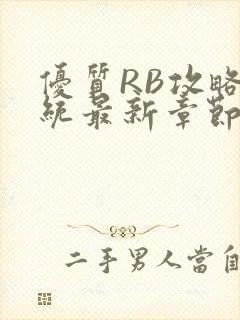 優質RB攻略
統最新章節
二手男人當自